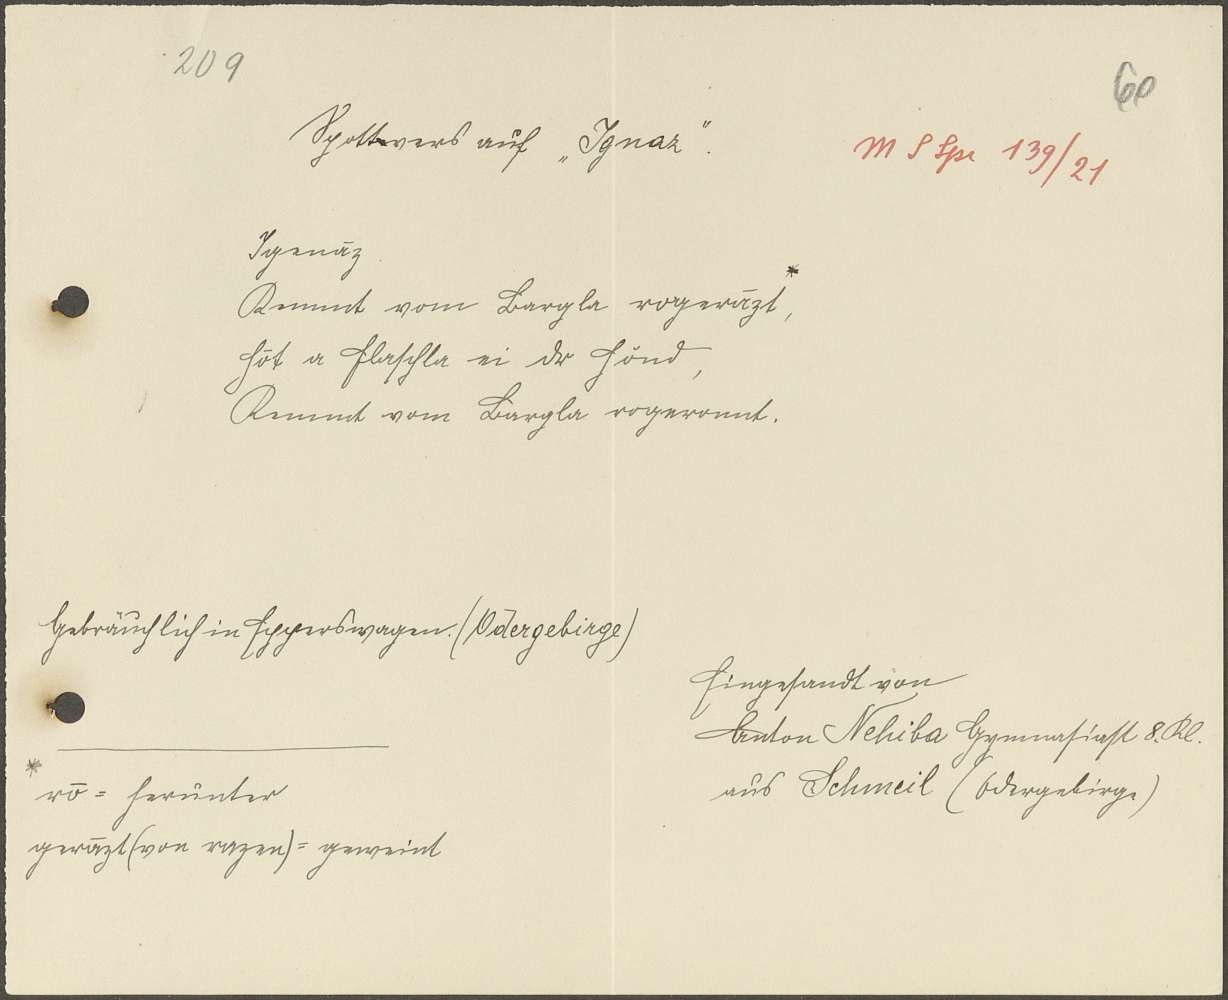 209
60
Spottvers auf „Ignaz".
M S Spr 139/21
Igenāz
Kemmt vom Bargla rogerāzt*,
hōt a Flaschla ei dr Hōnd,
Kemmt vom Bargla rogeronnt.
Gebräuchlich in Epperswagen. (Odergebirge)
Eingesandt von
Anton Nehiba Gymnasiast 8. Kl.
aus Schmeil (Odergebirge)
*
rō = herunter
gerāzt (von razen) = geweint